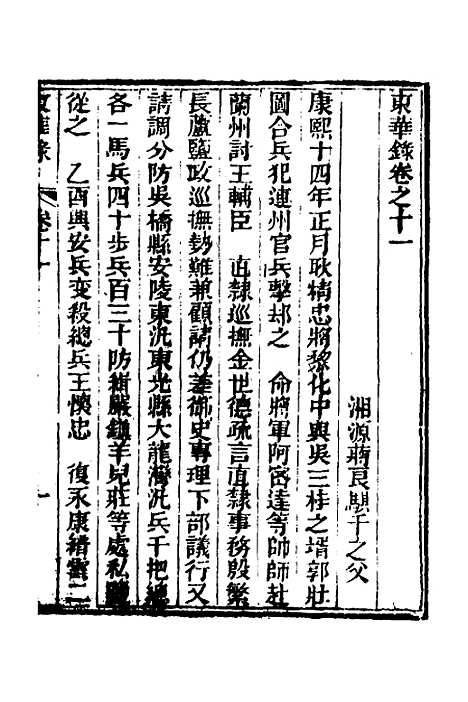 東華錄卷之十一
湘源蔣良騏千之父
康熙十四年正月耿精忠將黎化中與吳三桂之壻郭壯
圖合兵犯連州官兵擊却之 命將軍阿密達等帥師赴
蘭州討王輔臣 直隸巡撫金世德疏言直隸事務殷繁
長蘆鹽政巡撫勢難兼顧請仍差御史專理下部議行又
請調分防吳橋縣安陵東汛東光縣大龍灣汛兵千把總
各一馬兵四十步兵百三十防緝嚴鎮羊兒莊等處私
從之 乙酉興安兵变殺總兵王懷忠 復永康縉雲二